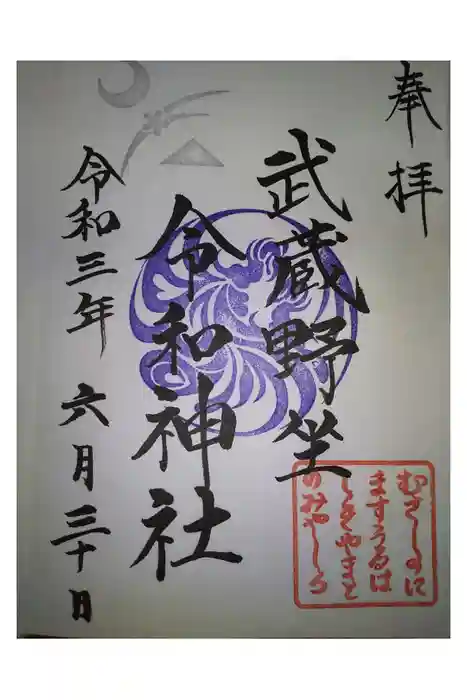 奉拝
武蔵野坐
令和神社
令和三年 六月三十日
むさしのに
ますうるは
しきやまと
のみやしろ